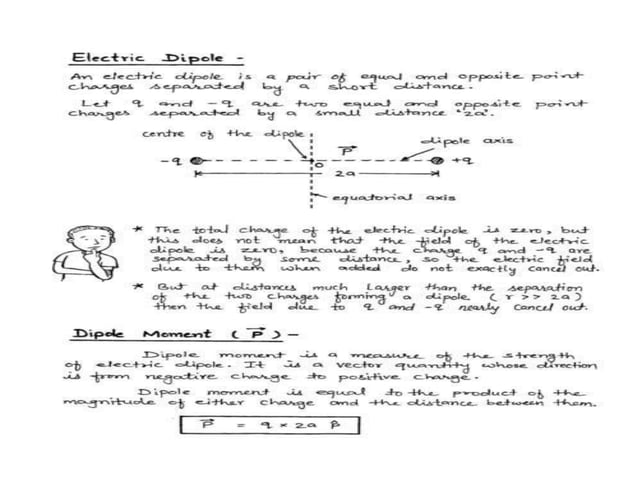 Electric Dipole -
An electric dipole is a pair of equal and opposite point
charges separated by a short distance.
Let q and -q are two equal and opposite point
charges separated by a small distance '2a'.
centre of the dipole
P⃗
dipole axis
-q
O
+q
2a
equatorial axis
* The total charge of the electric dipole is zero, but
this does not mean that the field of the electric
dipole is zero, because the charge q and -q are
separated by some distance, so the electric field
due to them when added do not exactly cancel out.
* But at distances much larger than the separation
of the two charges forming a dipole (r >> 2a)
then the field due to q and -q nearly cancel out.
Dipole Moment (P⃗) -
Dipole moment is a measure of the strength
of electric dipole. It is a vector quantity whose direction
is from negative charge to positive charge.
Dipole moment is equal to the product of the
magnitude of either charge and the distance between them.
P⃗ = q × 2a p̂